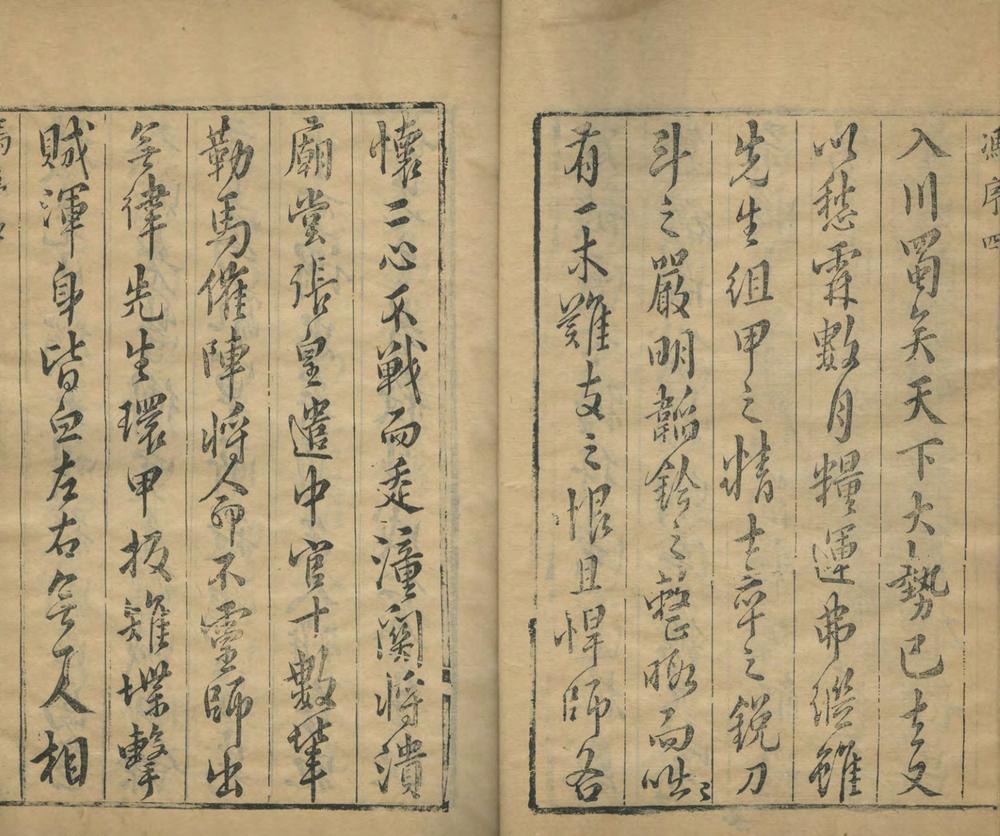 馮序四
入川蜀矣天下大勢已去又
以愁霖數月糧運弗繼雖
先生組甲之精士卒之銳刀
斗之嚴明韜鈐之整暇而咄々
有一木難支之恨且悍師各
懷二心不戰而走潼關將潰
廟堂張皇遣中官十數輩
勒馬催陣將命不靈師出
無律先生環甲扳雉堞擊
賊渾身皆血左右無一人相